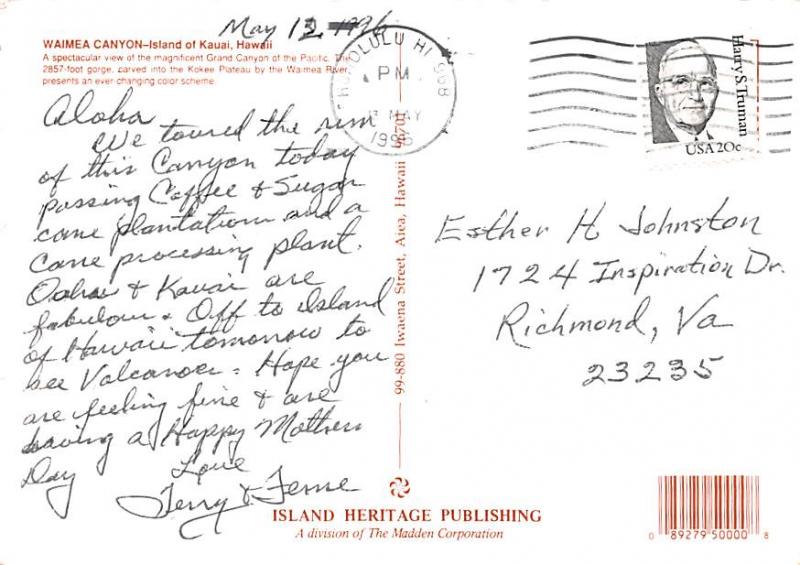 May 13, 1996
WAIMEA CANYON–Island of Kauai, Hawaii
A spectacular view of the magnificent Grand Canyon of the Pacific. The
2857-foot gorge, carved into the Kokee Plateau by the Waimea River,
presents an ever-changing color scheme.
Aloha
We toured the rim
of this Canyon today
passing Coffee & Sugar
cane plantations and a
Cane processing plant.
Oahu & Kauai are
fabulous. Off to Island
of Hawaii tomorrow to
see Valcanoes. Hope you
are feeling fine & are
having a Happy Mothers
Day
Love
Terry & Ferne
99-880 Iwaena Street, Aiea, Hawaii 96701
HONOLULU HI 968
PM
13 MAY
1996
Harry S. Truman
USA 20c
Esther H Johnston
1724 Inspiration Dr.
Richmond, Va
23235
ISLAND HERITAGE PUBLISHING
A division of The Madden Corporation
0 89279 50000 8